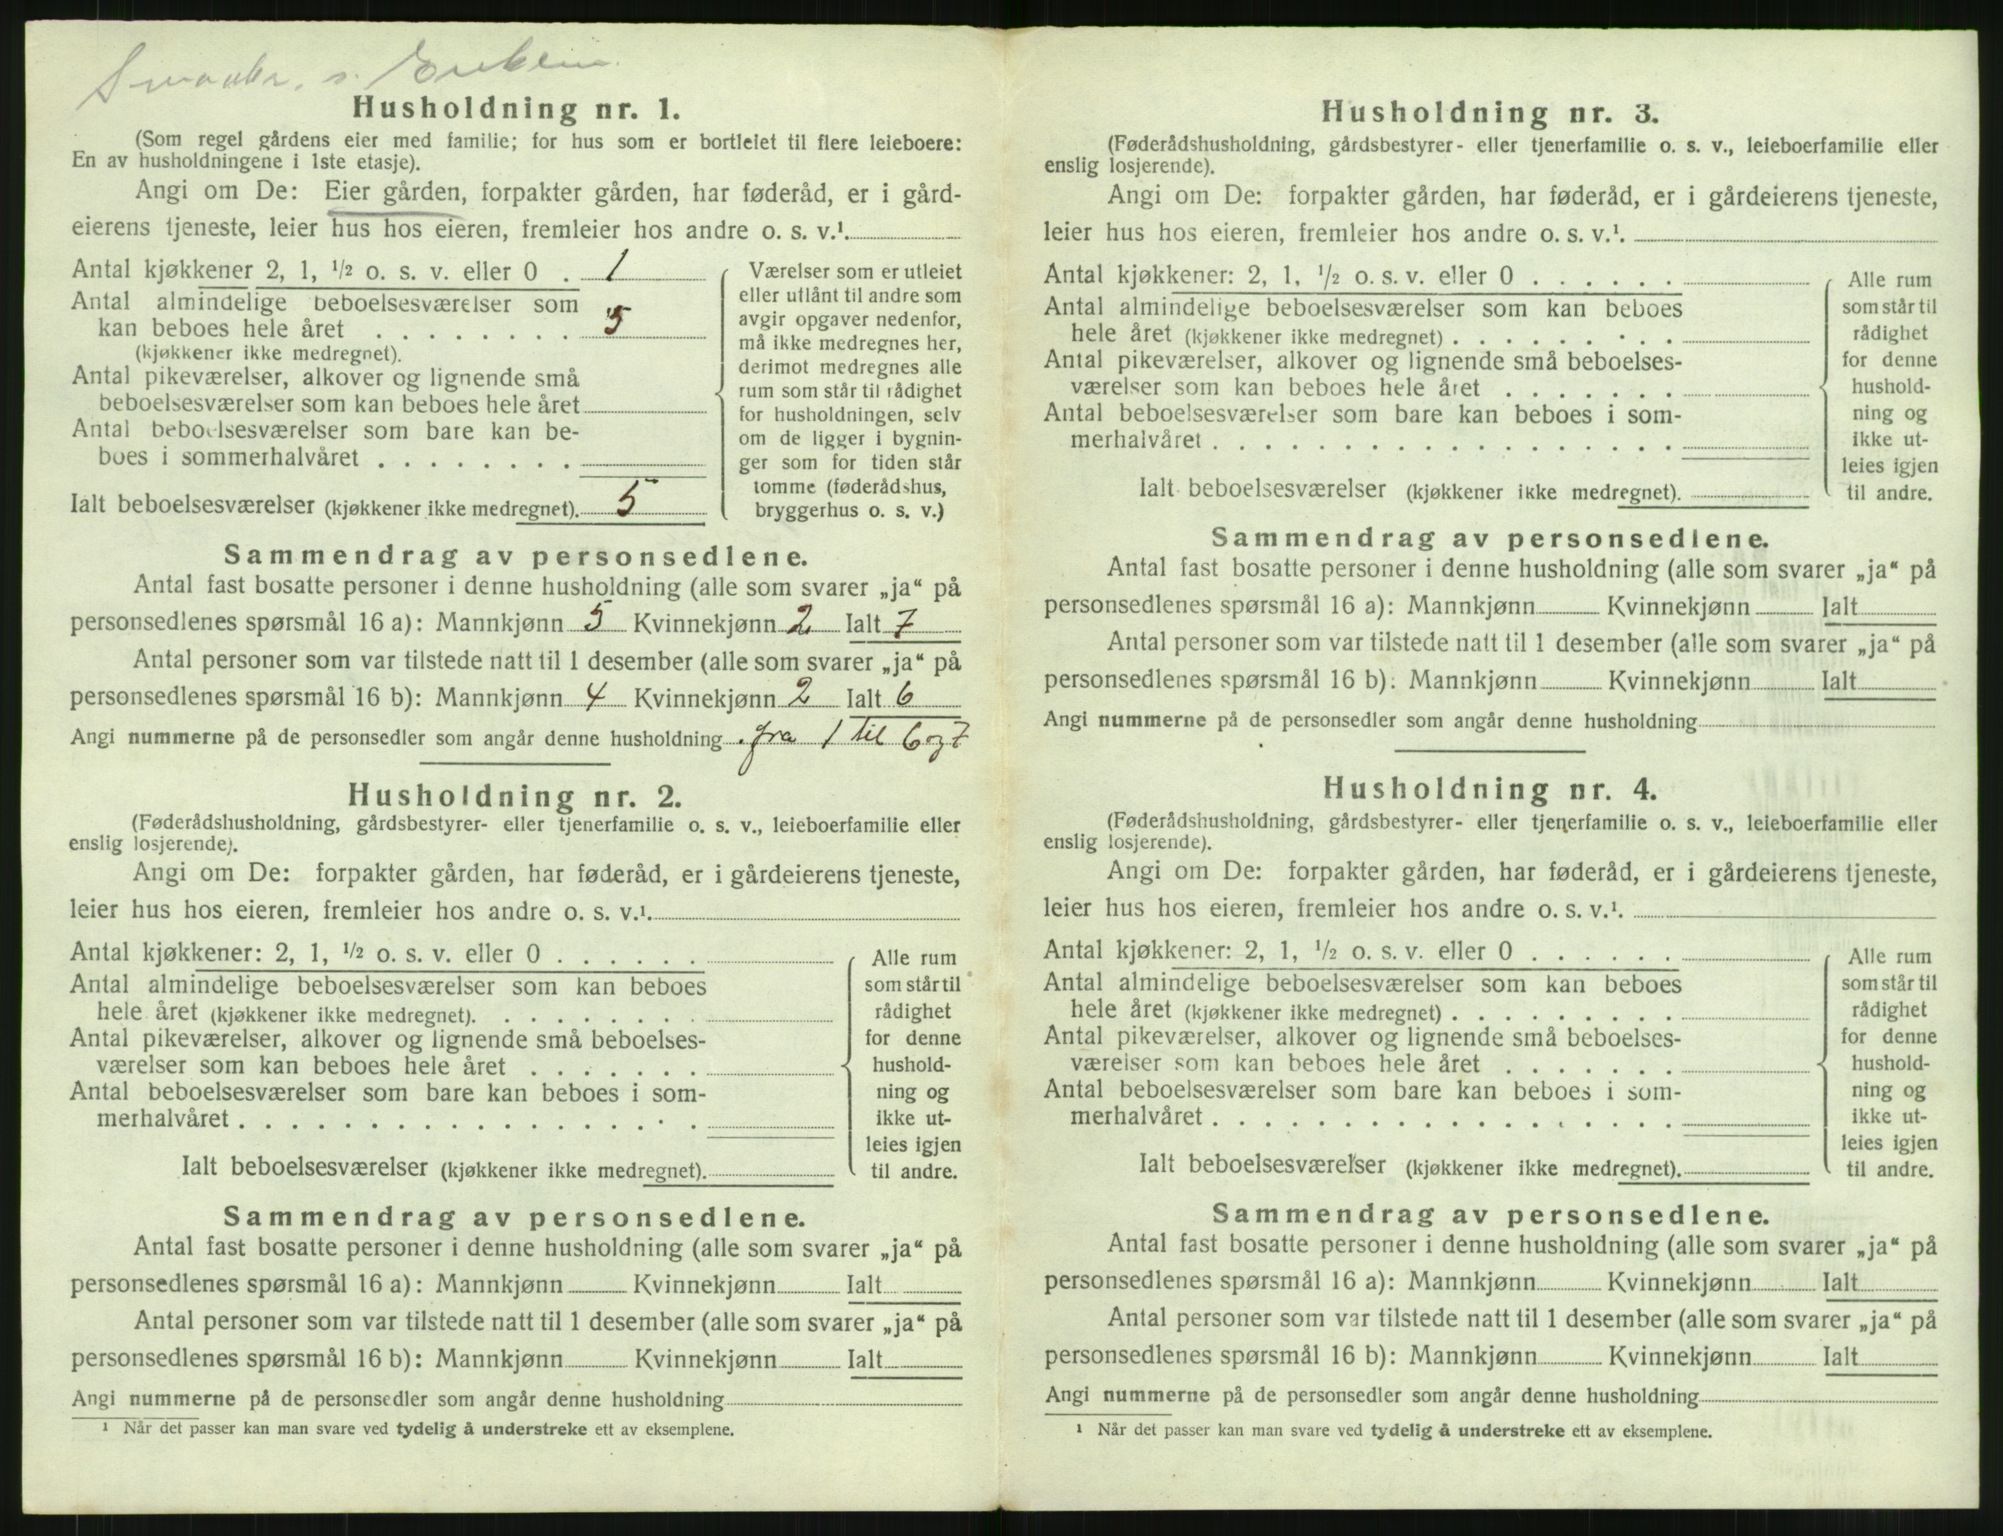 Husholdning nr. 1.
(Som regel gårdens eier med familie; for hus som er bortleiet til flere leieboere:
En av husholdningene i 1ste etasje).
Angi om De: Eier gården, forpakter gården, har føderåd, er i gård-
eierens tjeneste, leier hus hos eieren, fremleier hos andre o. s. v.¹.
Antal kjøkkener 2, 1, ½ o. s. v. eller 0 . 1
Antal almindelige beboelsesværelser som
kan beboes hele året . . . . . . . . 5
(kjøkkener ikke medregnet).
Antal pikeværelser, alkover og lignende små
beboelsesværelser som kan beboes hele året
Antal beboelsesværelser som bare kan be-
boes i sommerhalvåret . . . . . . . .
Ialt beboelsesværelser (kjøkkener ikke medregnet). 5
Værelser som er utleiet
eller utlånt til andre som
avgir opgaver nedenfor,
må ikke medregnes her,
derimot medregnes alle
rum som står til rådighet
for husholdningen, selv
om de ligger i bygnin-
ger som for tiden står
tomme (føderådshus,
bryggerhus o. s. v.)
Sammendrag av personsedlene.
Antal fast bosatte personer i denne husholdning (alle som svarer „ja“ på
personsedlenes spørsmål 16 a): Mannkjønn 5 Kvinnekjønn 2 Ialt 7
Antal personer som var tilstede natt til 1 desember (alle som svarer „ja“ på
personsedlenes spørsmål 16 b): Mannkjønn 4 Kvinnekjønn 2 Ialt 6
Angi nummerne på de personsedler som angår denne husholdning . fra 1 til 6 og 7
Husholdning nr. 2.
(Føderådshusholdning, gårdsbestyrer- eller tjenerfamilie o. s. v., leieboerfamilie eller
enslig losjerende).
Angi om De: forpakter gården, har føderåd, er i gårdeierens tjeneste,
leier hus hos eieren, fremleier hos andre o. s. v.¹.
Antal kjøkkener: 2, 1, ½ o. s. v. eller 0 . . . . . .
Antal almindelige beboelsesværelser som kan beboes
hele året (kjøkkener ikke medregnet). . . . . . . . .
Antal pikeværelser, alkover og lignende små beboelses-
værelser som kan beboes hele året . . . . . . .
Antal beboelsesværelser som bare kan beboes i som-
merhalvåret . . . . . . . . . . . . . . . . . .
Ialt beboelsesværelser (kjøkkener ikke medregnet).
Alle rum
som står til
rådighet
for denne
hushold-
ning og
ikke ut-
leies igjen
til andre.
Sammendrag av personsedlene.
Antal fast bosatte personer i denne husholdning (alle som svarer „ja“ på
personsedlenes spørsmål 16 a): Mannkjønn Kvinnekjønn Ialt
Antal personer som var tilstede natt til 1 desember (alle som svarer „ja“ på
personsedlenes spørsmål 16 b): Mannkjønn Kvinnekjønn Ialt
Angi nummerne på de personsedler som angår denne husholdning
¹ Når det passer kan man svare ved tydelig å understreke ett av eksemplene.
Husholdning nr. 3.
(Føderådshusholdning, gårdsbestyrer- eller tjenerfamilie o. s. v., leieboerfamilie eller
enslig losjerende).
Angi om De: forpakter gården, har føderåd, er i gårdeierens tjeneste,
leier hus hos eieren, fremleier hos andre o. s. v.¹.
Antal kjøkkener: 2, 1, ½ o. s. v. eller 0 . . . . . .
Antal almindelige beboelsesværelser som kan beboes
hele året (kjøkkener ikke medregnet) . . . . . . . . .
Antal pikeværelser, alkover og lignende små beboelses-
værelser som kan beboes hele året . . . . . . .
Antal beboelsesværelser som bare kan beboes i som-
merhalvåret . . . . . . . . . . . . . . . . . .
Ialt beboelsesværelser (kjøkkener ikke medregnet).
Alle rum
som står til
rådighet
for denne
hushold-
ning og
ikke ut-
leies igjen
til andre.
Sammendrag av personsedlene.
Antal fast bosatte personer i denne husholdning (alle som svarer „ja“ på
personsedlenes spørsmål 16 a): Mannkjønn Kvinnekjønn Ialt
Antal personer som var tilstede natt til 1 desember (alle som svarer „ja“ på
personsedlenes spørsmål 16 b). Mannkjønn Kvinnekjønn Ialt
Angi nummerne på de personsedler som angår denne husholdning
Husholdning nr. 4.
(Føderådshusholdning, gårdsbestyrer- eller tjenerfamilie o. s. v., leieboerfamilie eller
enslig losjerende).
Angi om De: forpakter gården, har føderåd, er i gårdeierens tjeneste,
leier hus hos eieren, fremleier hos andre o. s. v.¹.
Antal kjøkkener: 2, 1, ½ o. s. v. eller 0 . . . . . .
Antal almindelige beboelsesværelser som kan beboes
hele året (kjøkkener ikke medregnet) . . . . . . . . .
Antal pikeværelser, alkover og lignende små beboelses-
værelser som kan beboes hele året . . . . . . .
Antal beboelsesværelser som bare kan beboes i som-
merhalvåret . . . . . . . . . . . . . . . . . .
Ialt beboelsesværelser (kjøkkener ikke medregnet).
Alle rum
som står til
rådighet
for denne
hushold-
ning og
ikke ut-
leies igjen
til andre.
Sammendrag av personsedlene.
Antal fast bosatte personer i denne husholdning (alle som svarer „ja“ på
personsedlenes spørsmål 16 a): Mannkjønn Kvinnekjønn Ialt
Antal personer som var tilstede natt til 1 desember (alle som svarer „ja“ på
personsedlenes spørsmål 16 b): Mannkjønn Kvinnekjønn Ialt
Angi nummerne på de personsedler som angår denne husholdning
¹ Når det passer kan man svare ved tydelig å understreke ett av eksemplene.